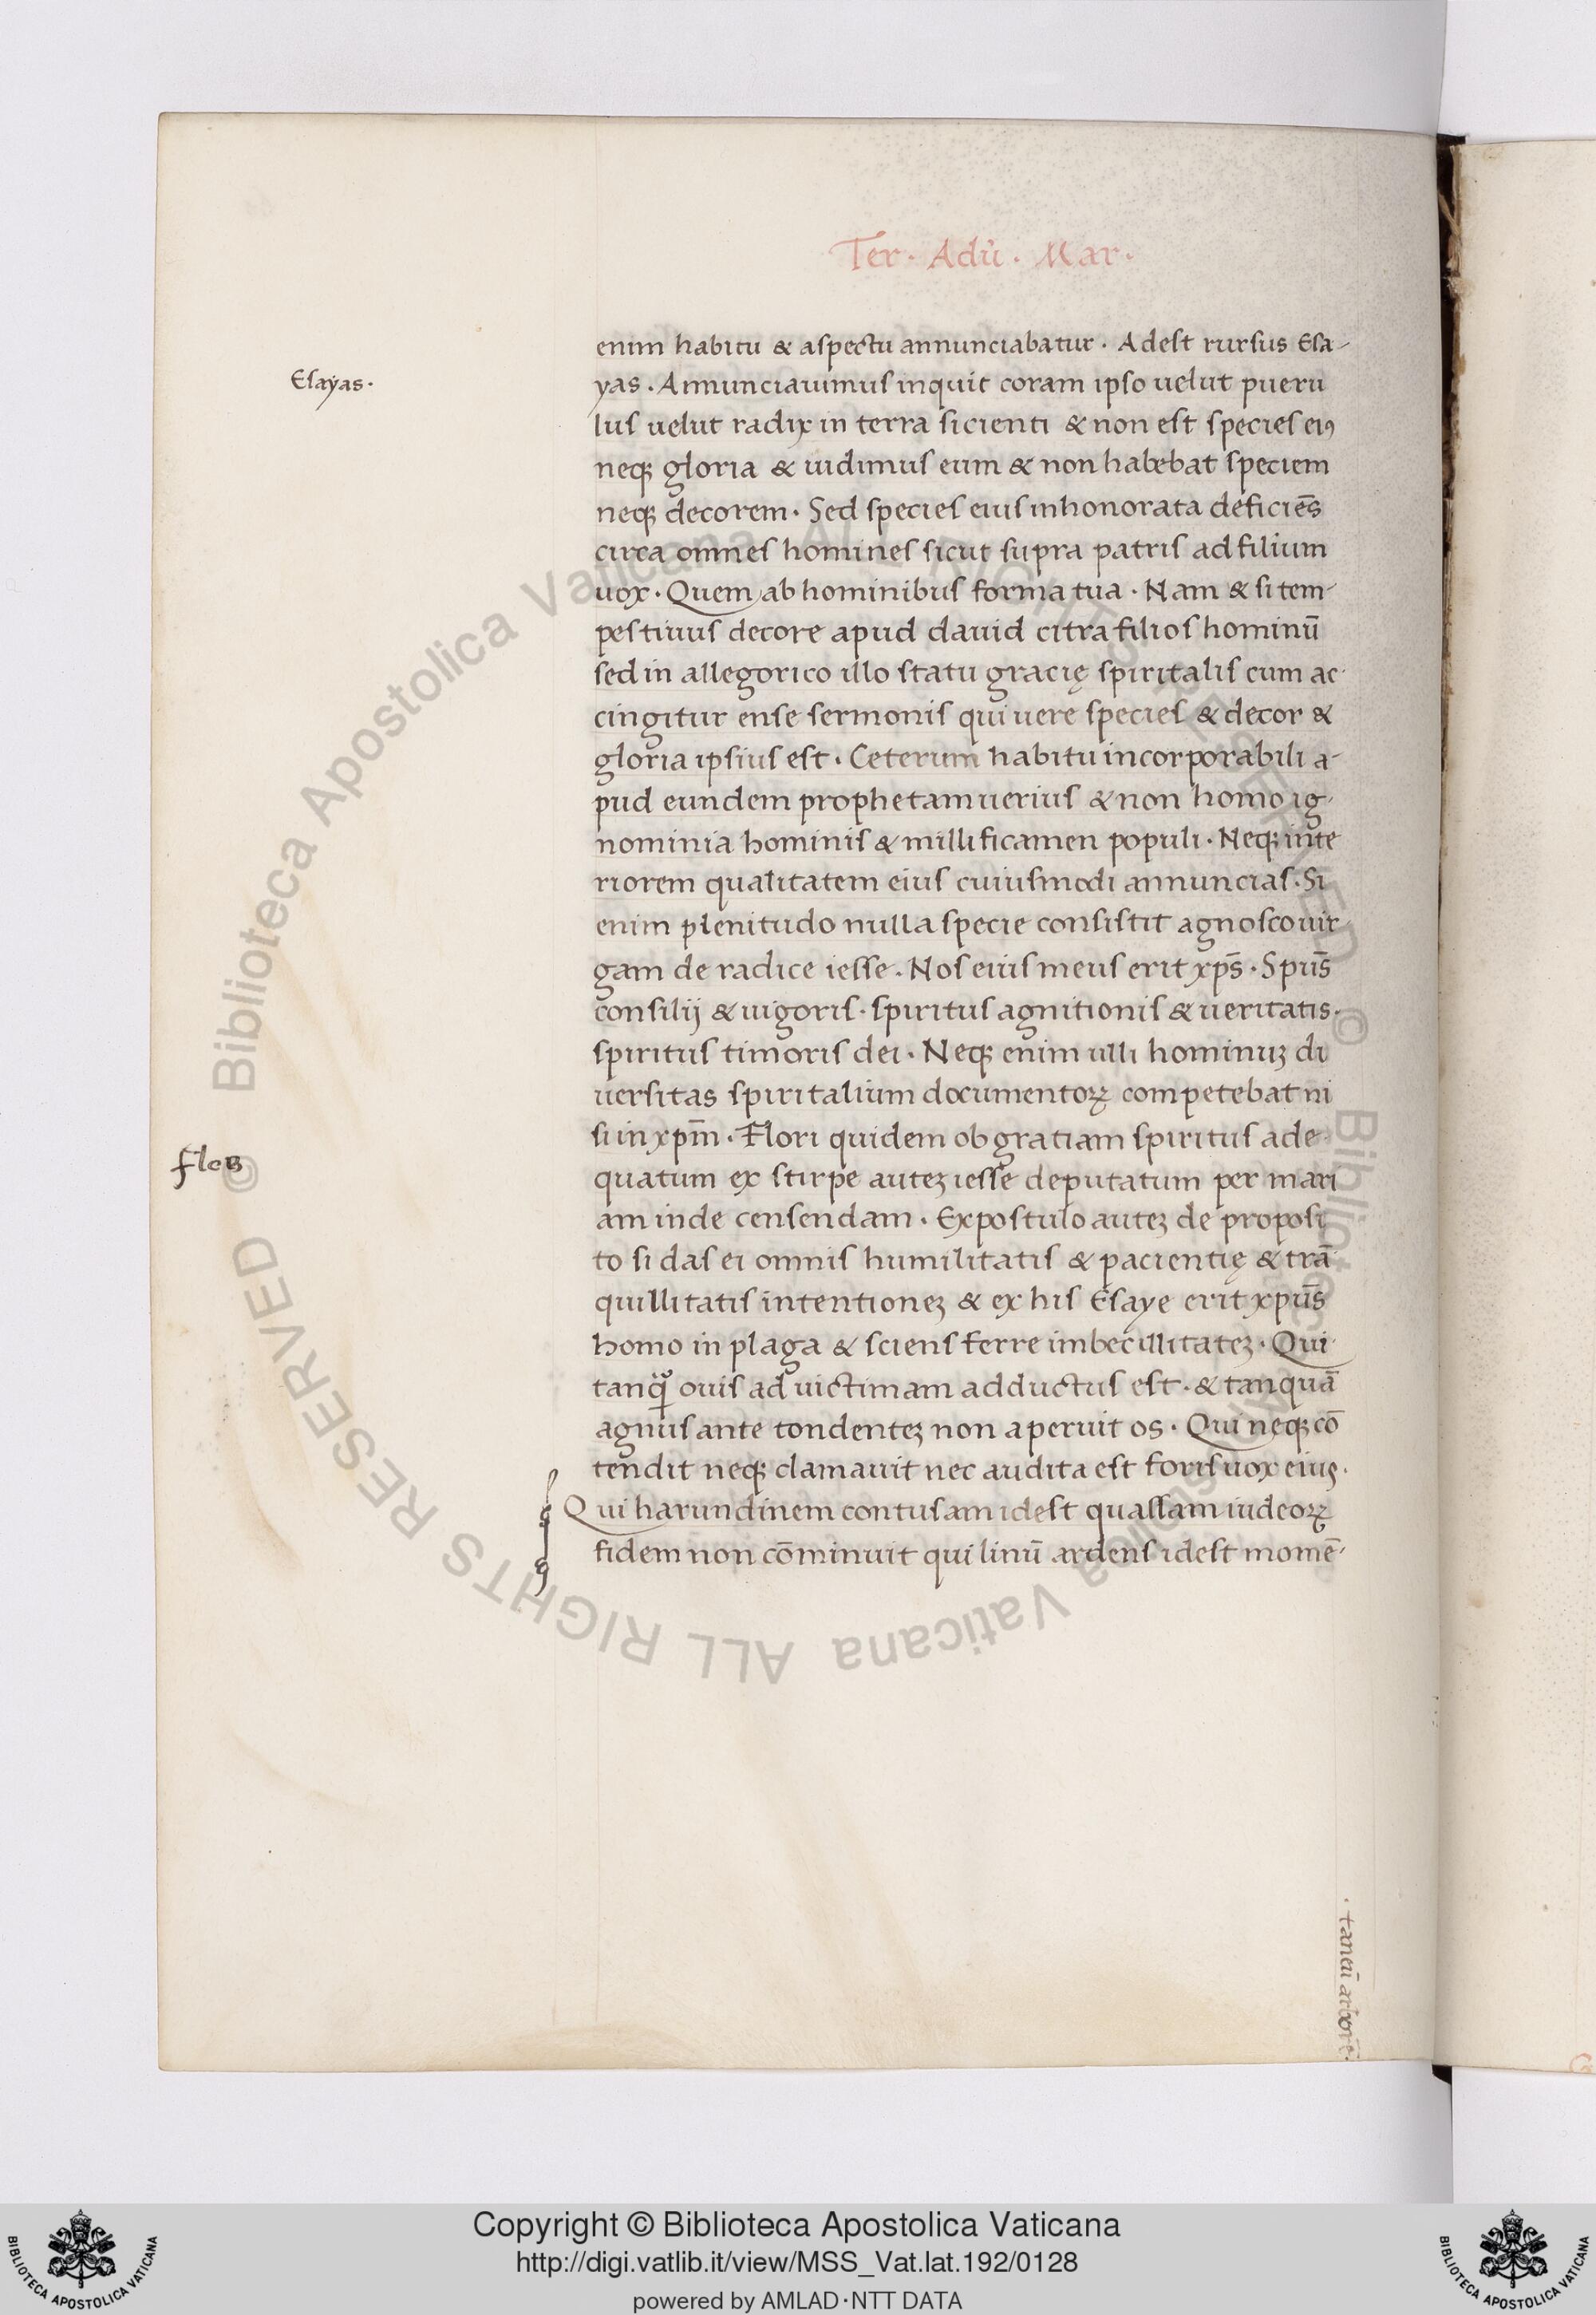 Ter · Adů · Mar ·
enim habitu & aspectu annunciabatur · Adest rursus Esa-
Esayas ·
yas · Annunciauimus inquit coram ipso uelut pueru
lus uelut radix in terra sicienti & non est species eiꝰ
neqꝫ gloria & uidimus eum & non habebat speciem
neqꝫ decorem · Sed species eius inhonorata deficiēs
circa omnes homines sicut supra patris ad filium
uox · Quem ab hominibus forma tua · Nam & si tem-
pestiuus decore apud dauid citra filios hominū
sed in allegorico illo statu gracię spiritalis cum ac-
cingitur ense sermonis qui uere species & decor &
gloria ipsius est · Ceterum habitu incorporabili a-
pud eundem prophetam uerius & non homo ig-
nominia hominis & millificamen populi · Neqꝫ inte
riorem qualitatem eius cuiusmodi annuncias · Si
enim plenitudo nulla specie consistit agnosco uir-
gam de radice iesse · Nos eius meus erit xp̄s · Spūs
consilij & uigoris · spiritus agnitionis & ueritatis ·
spiritus timoris dei · Neqꝫ enim ulli hominuꝫ di
uersitas spiritalium documentoꝝ competebat ni
si in xp̄m · Flori quidem ob gratiam spiritus ade-
flos
quatum ex stirpe auteꝫ iesse deputatum per mari
am inde censendam · Expostulo auteꝫ de proposi
to si das ei omnis humilitatis & pacientię & trā
quillitatis intentioneꝫ & ex his Esaye erit xpūs
homo in plaga & sciens ferre imbecillitateꝫ · Qui
tanq̃ ouis ad uictimam adductus est · & tanquā
agnus ante tondenteꝫ non aperuit os · Qui neqꝫ cō
tendit neqꝫ clamauit nec audita est foris uox eius ·
Qui harundinem contusam idest quassam iudeoꝝ
fidem non cōminuit qui linū ardens idest momē-
· taneū arborē ·
Copyright © Biblioteca Apostolica Vaticana
http://digi.vatlib.it/view/MSS_Vat.lat.192/0128
powered by AMLAD·NTT DATA
© Biblioteca Apostolica Vaticana ALL RIGHTS RESERVED
© Biblioteca Apostolica Vaticana ALL RIGHTS RESERVED
BIBLIOTECA APOSTOLICA VATICANA
BIBLIOTECA APOSTOLICA VATICANA